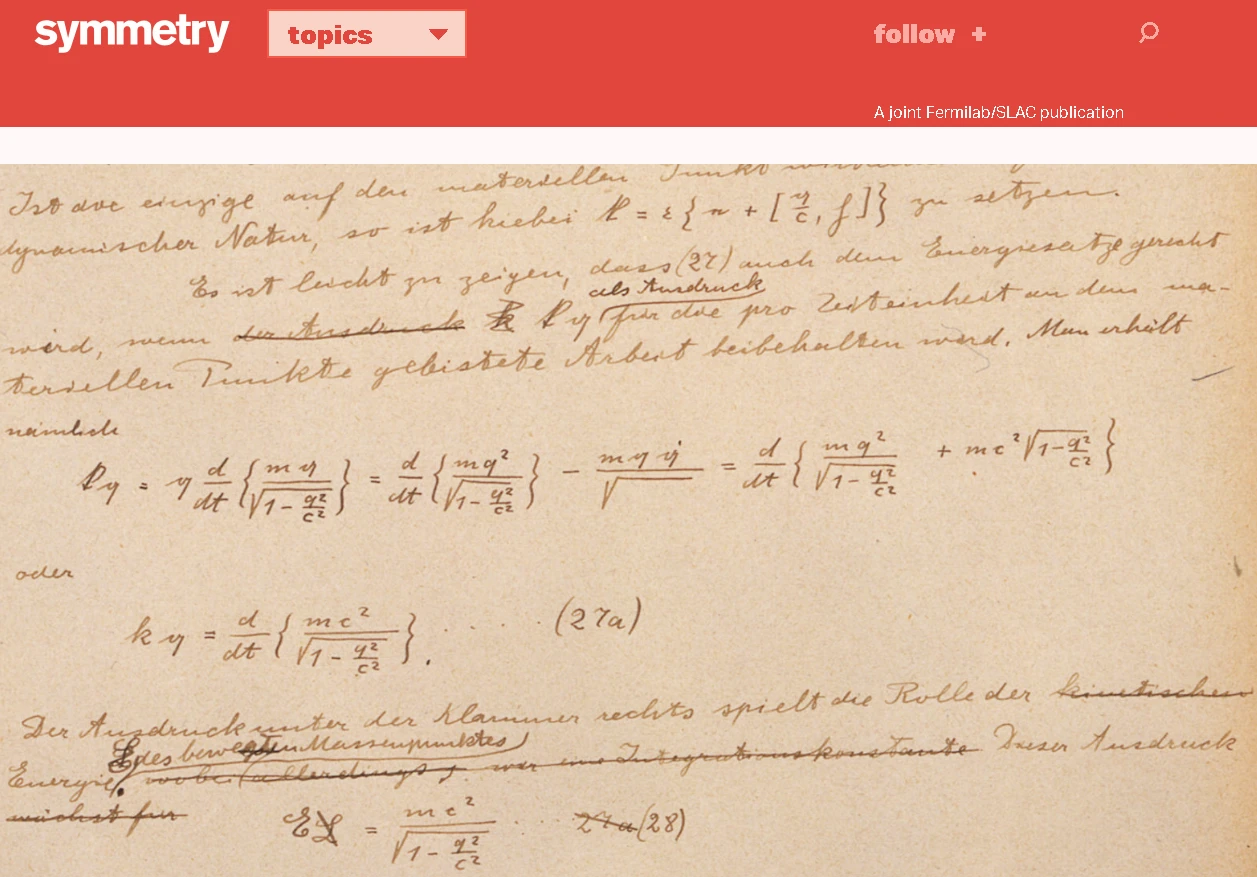 symmetry
topics
follow +
A joint Fermilab/SLAC publication
Ist die einzige auf den materiellen Punkt
dynamischer Natur, so ist hiebei k = ε { n + [ q/c , f ] } zu setzen.
Es ist leicht zu zeigen, dass (27) auch dem Energiesatze gerecht
als Ausdruck
wird, wenn der Ausdruck k k q für die pro Zeiteinheit an dem ma-
teriellen Punkte geleistete Arbeit beibehalten wird. Man erhält
nämlich
k q = q d/dt { m q / √(1 - q²/c²) } = d/dt { m q² / √(1 - q²/c²) } - m q q̇ / √ = d/dt { m q² / √(1 - q²/c²) + m c² √(1 - q²/c²) }
oder
k q = d/dt { m c² / √(1 - q²/c²) } . . . . . (27a)
Der Ausdruck unter der Klammer rechts spielt die Rolle der kinetischen
des bewegten Massenpunktes
Energie, wobei (allerdings), war eine Integrationskonstante Dieser Ausdruck
wächst für
E L = m c² / √(1 - q²/c²) . . . 27a (28)